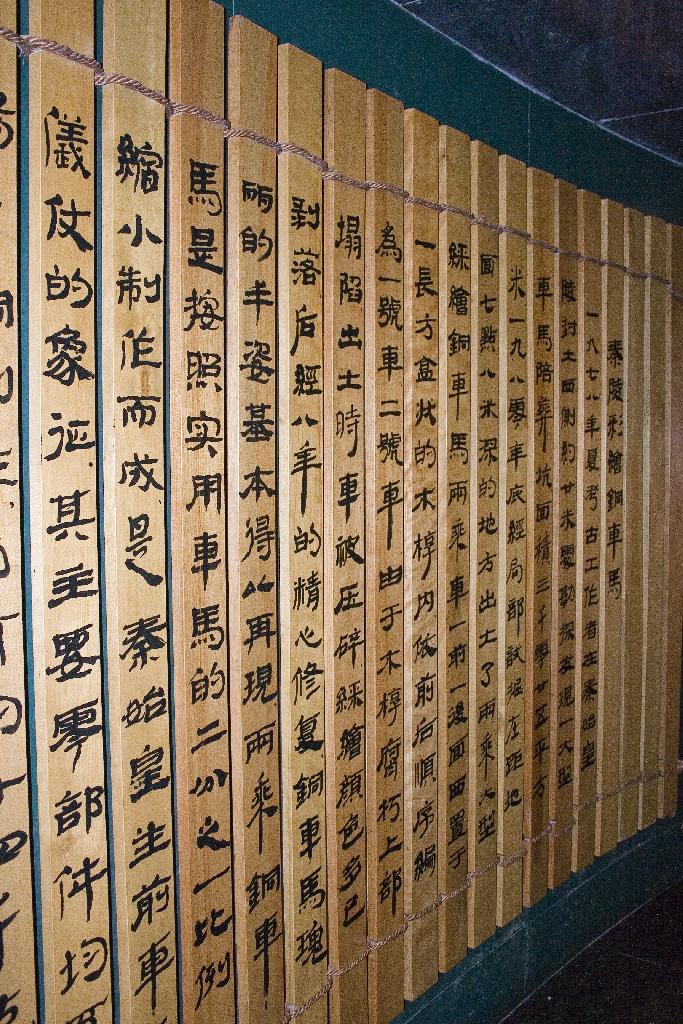 秦陵彩繪銅車馬
一九七八年夏考古工作者在秦始皇
陵封土西側約廿米零勘探發現一大型
車馬陪葬坑面積三千零廿五平方
米一九八零年底經局部試掘在距地
面七點八米深的地方出土了兩乘大型
綵繪銅車馬兩乘車一前一後面西置于
一長方盒狀的木椁内依前后順序編
為一號車二號車由于木椁腐朽上部
塌陷出土時車被压碎綵繪顔色多已
剥落后經八年的精心修复銅車馬瑰
丽的丰姿基本得以再現兩乘銅車
馬是按照实用車馬的二分之一比例
縮小制作而成是秦始皇生前車
儀仗的象征其主要零部件均